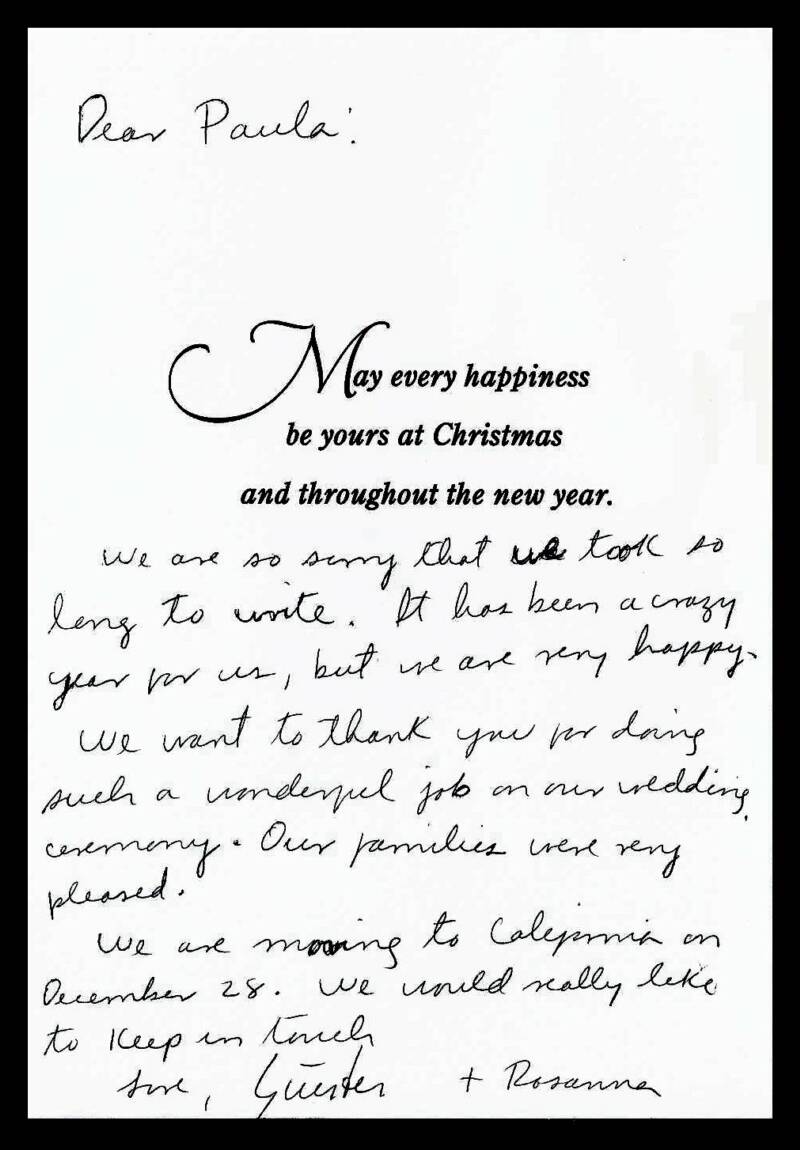 Dear Paula:
May every happiness
be yours at Christmas
and throughout the new year.
We are so sorry that we took so
long to write. It has been a crazy
year for us, but we are very happy.
We want to thank you for doing
such a wonderful job on our wedding
ceremony. Our families were very
pleased.
We are moving to California on
December 28. We would really like
to keep in touch
Love, + Rosanna